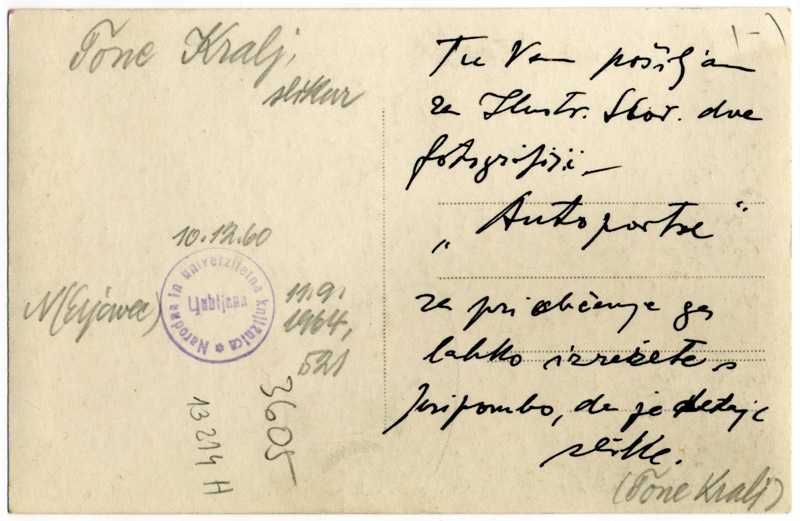 Tone Kralj,
slikar
10.12.60
N(Erjavec)
Narodna in univerzitetna knjižnica
Ljubljana
11.9.
1964,
521
3605
13214 H
(-)
Tu Vam pošiljam
za Ilustr. Slov. dve
fotografiji –
„Autoportre“
za priobčenje ga
lahko izrežete s
pripombo, da je detajl
slike.
(Tone Kralj)